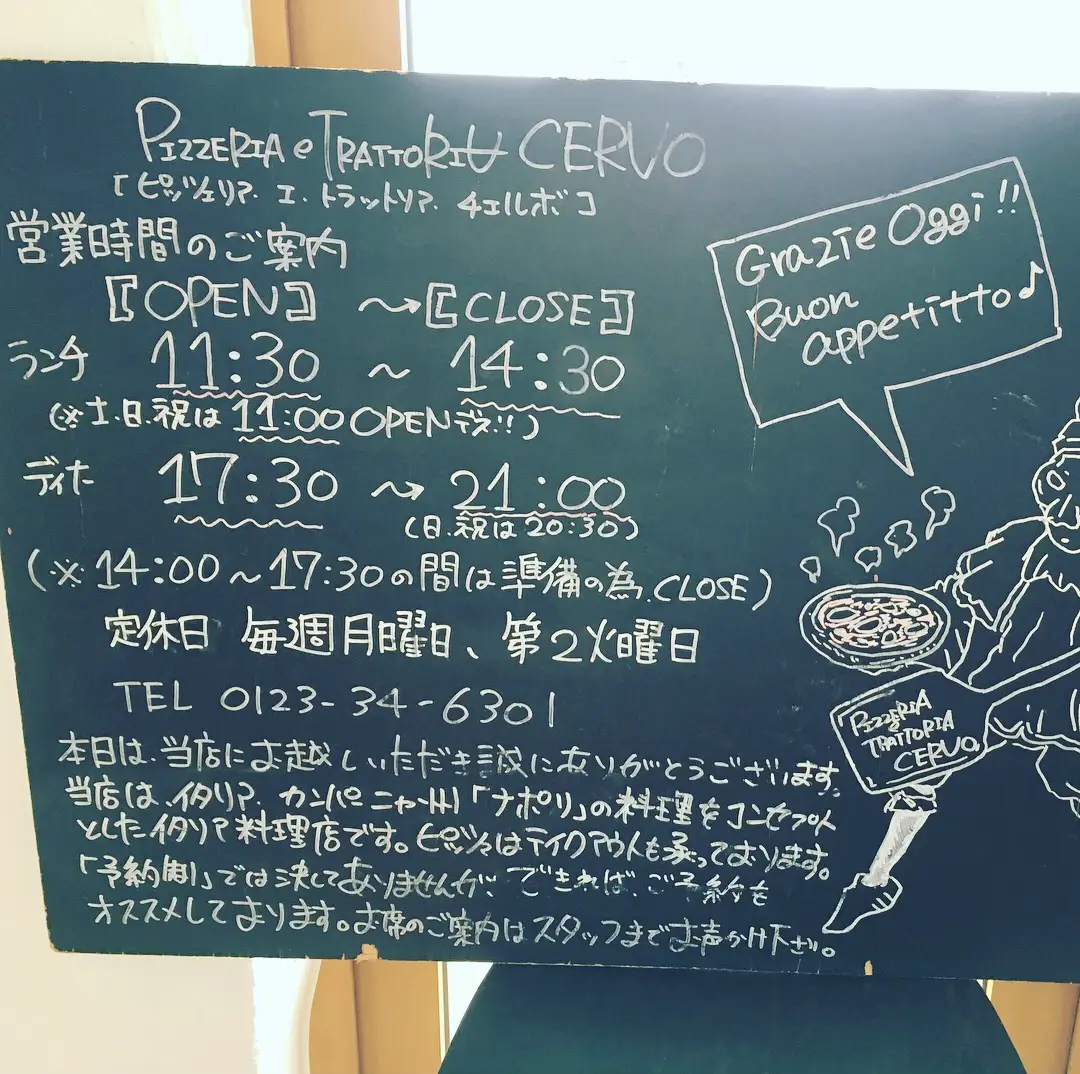 PIZZERIA e TRATTORIA CERVO
「ピッツェリア. エ. トラットリア. チェルボ」
営業時間のご案内
〖OPEN〗 〜→〖CLOSE〗
ランチ 11:30 〜 14:30
(※土.日.祝は 11:00 OPENデス!!)
ディナー 17:30 〜→ 21:00
(日.祝は 20:30)
(※ 14:00〜17:30の間は準備の為.CLOSE)
定休日 毎週月曜日、第2火曜日
TEL 0123-34-6301
本日は、当店にお越しいただき誠にありがとうございます。
当店は、イタリア. カンパニャー州「ナポリ」の料理をコンセプト
としたイタリア料理店です。ピッツァはテイクアウトも承っております。
「予約制」では決してありませんが、できれば、ご予約を
オススメしております。お席のご案内はスタッフまでお声かけ下さい。
Grazie Oggi!!
Buon
appetitto♪
PIZZERIA
e
TRATTORIA
CERVO